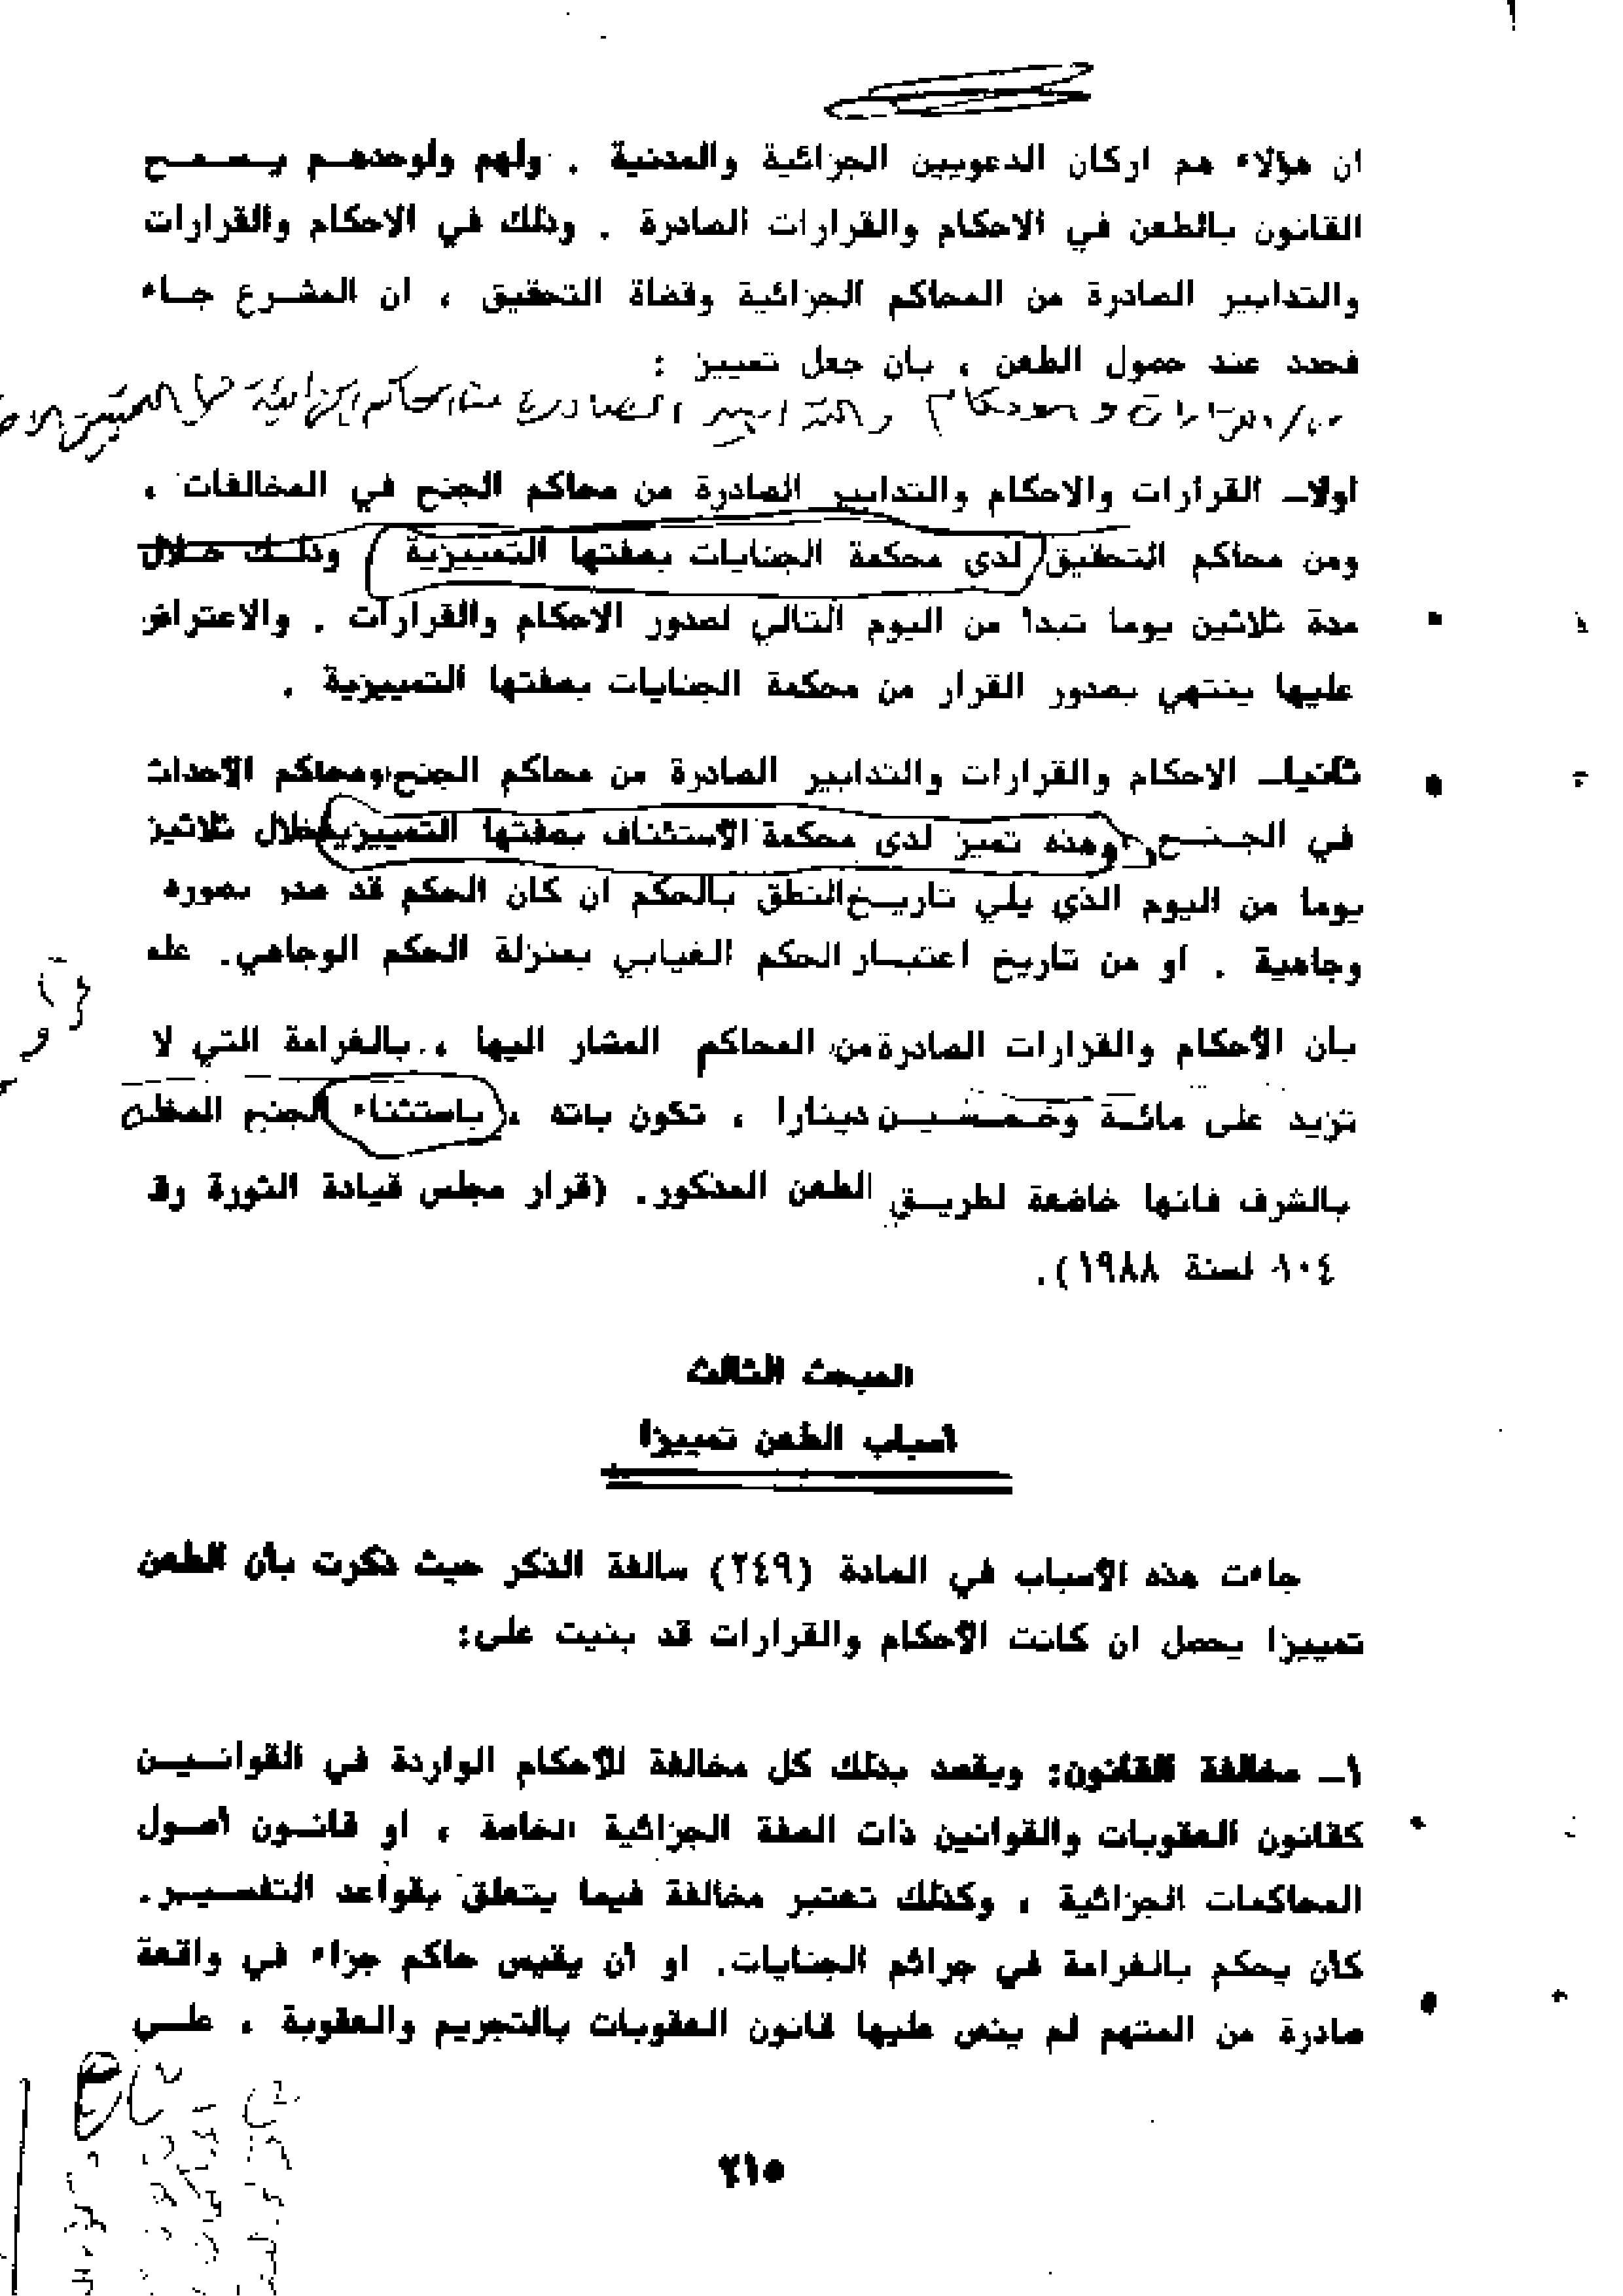 ان هؤلاء هم اركان الدعويين الجزائية والمدنية . ولهم ولوحدهـم يـسـمـح
القانون بالطعن في الاحكام والقرارات الصادرة . وذلك في الاحكام والقرارات
والتدابير الصادرة من المحاكم الجزائية وقضاة التحقيق ، ان المشـرع جـاء
فحدد عند حصول الطعن ، بان جعل تمييز :
اولاـ القرارات والاحكام والتدابير الصادرة من محاكم الجنح في المخالفات ،
ومن محاكم التحقيق لدى محكمة الجنايات بصفتها التمييزية وذلـك خـلال
مدة ثلاثين يوما تبدأ من اليوم التالي لصدور الاحكام والقرارات . والاعتراض
عليها ينتهي بصدور القرار من محكمة الجنايات بصفتها التمييزية .
ثانياـ الاحكام والقرارات والتدابير الصادرة من محاكم الجنح ومحاكم الأحداث
في الجـنـح وهذه تميز لدى محكمة الأستئناف بصفتها التمييزية خلال ثلاثين
يوما من اليوم الذي يلي تاريـخ النطق بالحكم ان كان الحكم قد صدر بصورة
وجاهية . أو من تاريخ اعتبـار الحكم الغيابي بمنزلة الحكم الوجاهي.
بأن الأحكام والقرارات الصادرة من المحاكم المشار اليها ، بالغرامة التي لا
تزيد على مائـة وخـمـسـيـن دينارا ، تكون باته ، باستثناء الجنح المخلة
بالشرف فانها خاضعة لطريـق الطعن المذكور. (قرار مجلس قيادة الثورة
١٠٤ لسنة ١٩٨٨).
المبحث الثالث
اسباب الطعن تمييزا
جاءت هذه الأسباب في المادة (٢٤٩) سالفة الذكر حيث ذكرت بأن الطعن
تمييزا يحصل ان كانت الأحكام والقرارات قد بنيت على:
١ـ مخالفة القانون: ويقصد بذلك كل مخالفة للأحكام الواردة في القوانـيـن
كقانون العقوبات والقوانين ذات الصفة الجزائية الخاصة ، او قانـون اصـول
المحاكمات الجزائية ، وكذلك تعتبر مخالفة فيما يتعلق بقواعد التفسـيـر.
كأن يحكم بالغرامة في جرائم الجنايات. او أن يقيس حاكم جزاء في واقعة
صادرة من المتهم لم ينص عليها قانون العقوبات بالتجريم والعقوبة ، علـى
٢١٥